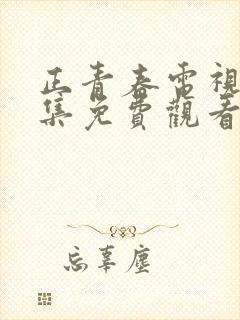 正青春電視
集免費觀看
忘辜塵